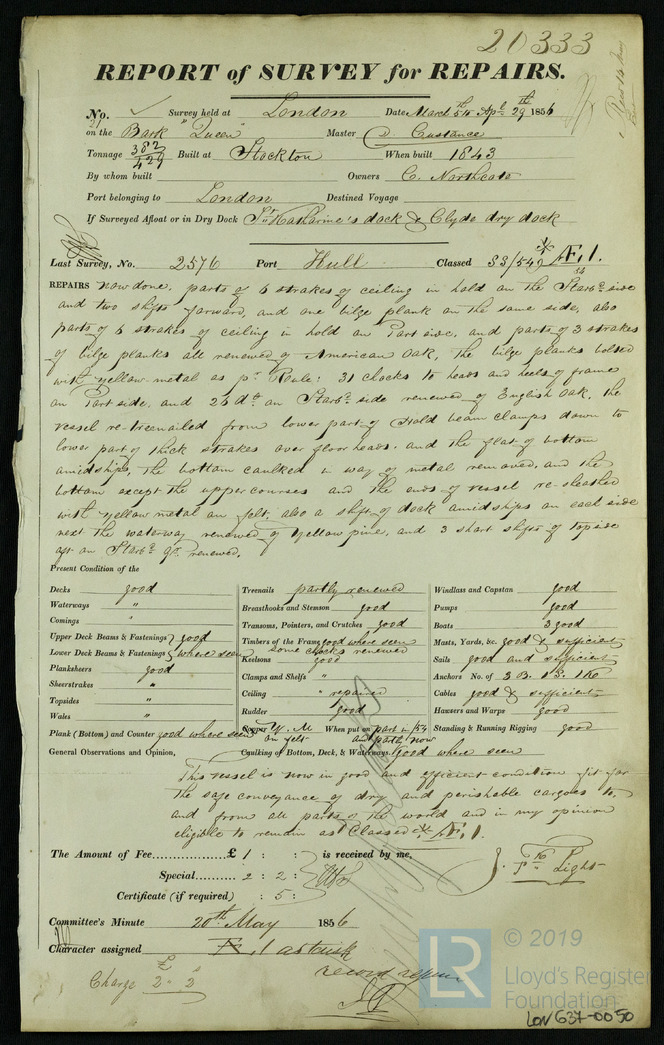 20333
REPORT of SURVEY for REPAIRS.
No. ✓ Survey held at London Date March 5th Apl 29th 1856
on the Bark "Queen" Master D. Custance
Tonnage 382/429 Built at Stockton When built 1843
By whom built Owners C. Northcote
Port belonging to London Destined Voyage
If Surveyed Afloat or in Dry Dock St Katharine's dock & Clyde dry dock
Last Survey, No. 2576 Port Hull Classed 33/54 Æ 1.
REPAIRS now done, parts of 6 strakes of ceiling in hold on the Starbd side
and two shifts forward, and one bilge plank on the same side, also
parts of 6 strakes of ceiling in hold on Port side, and parts of 3 strakes
of bilge planks all renewed of American Oak, the bilge planks bolted
with yellow metal as pr Rule: 31 chocks to heads and heels of frame
on Port side, and 26 do on Starbd side renewed of English Oak, the
vessel re-treenailed from lower part of Hold beam clamps down to
lower part of thick strakes over floor heads. and the flat of bottom
amidships, the bottom caulked in way of metal removed, and the
bottom except the upper courses and the ends of vessel re-sheathed
with yellow metal on felt, also a shift of deck amidships on each side
next the waterway renewed of yellow pine, and 3 short shifts of topside
aft on Starbd qr. renewed.
Present Condition of the
Decks good
Waterways "
Comings "
Upper Deck Beams & Fastenings good
Lower Deck Beams & Fastenings where seen
Planksheers good
Sheerstrakes "
Topsides "
Wales "
Plank (Bottom) and Counter good where seen
Treenails partly renewed
Breasthooks and Stemson good
Transoms, Pointers, and Crutches good
Timbers of the Frame good where seen
some chocks renewed
Keelsons good
Clamps and Shelfs "
Ceiling " repaired
Rudder good
Copper Y. M on felt When put on part in /54
and partly now
Caulking of Bottom, Deck, & Waterways good where seen
Windlass and Capstan good
Pumps good
Boats 3 good
Masts, Yards, &c. good & sufficient
Sails good and sufficient
Anchors No. of 3 B. 1 S. 1 Ke
Cables good & sufficient
Hawsers and Warps good
Standing & Running Rigging good
General Observations and Opinion,
This vessel is now in good and efficient condition fit for
the safe conveyance of dry and perishable cargoes to,
and from all parts of the world and in my opinion
eligible to remain as Classed Æ 1.
The Amount of Fee £ 1 : : is received by me,
Special 2 : 2 :
Certificate (if required) : 5 :
Light
Committee's Minute 20th May 1856
Character assigned Æ 1 asterisk
Charge £2 . s2
© 2019
LR
Lloyd's Register
Foundation
LON 637-0050